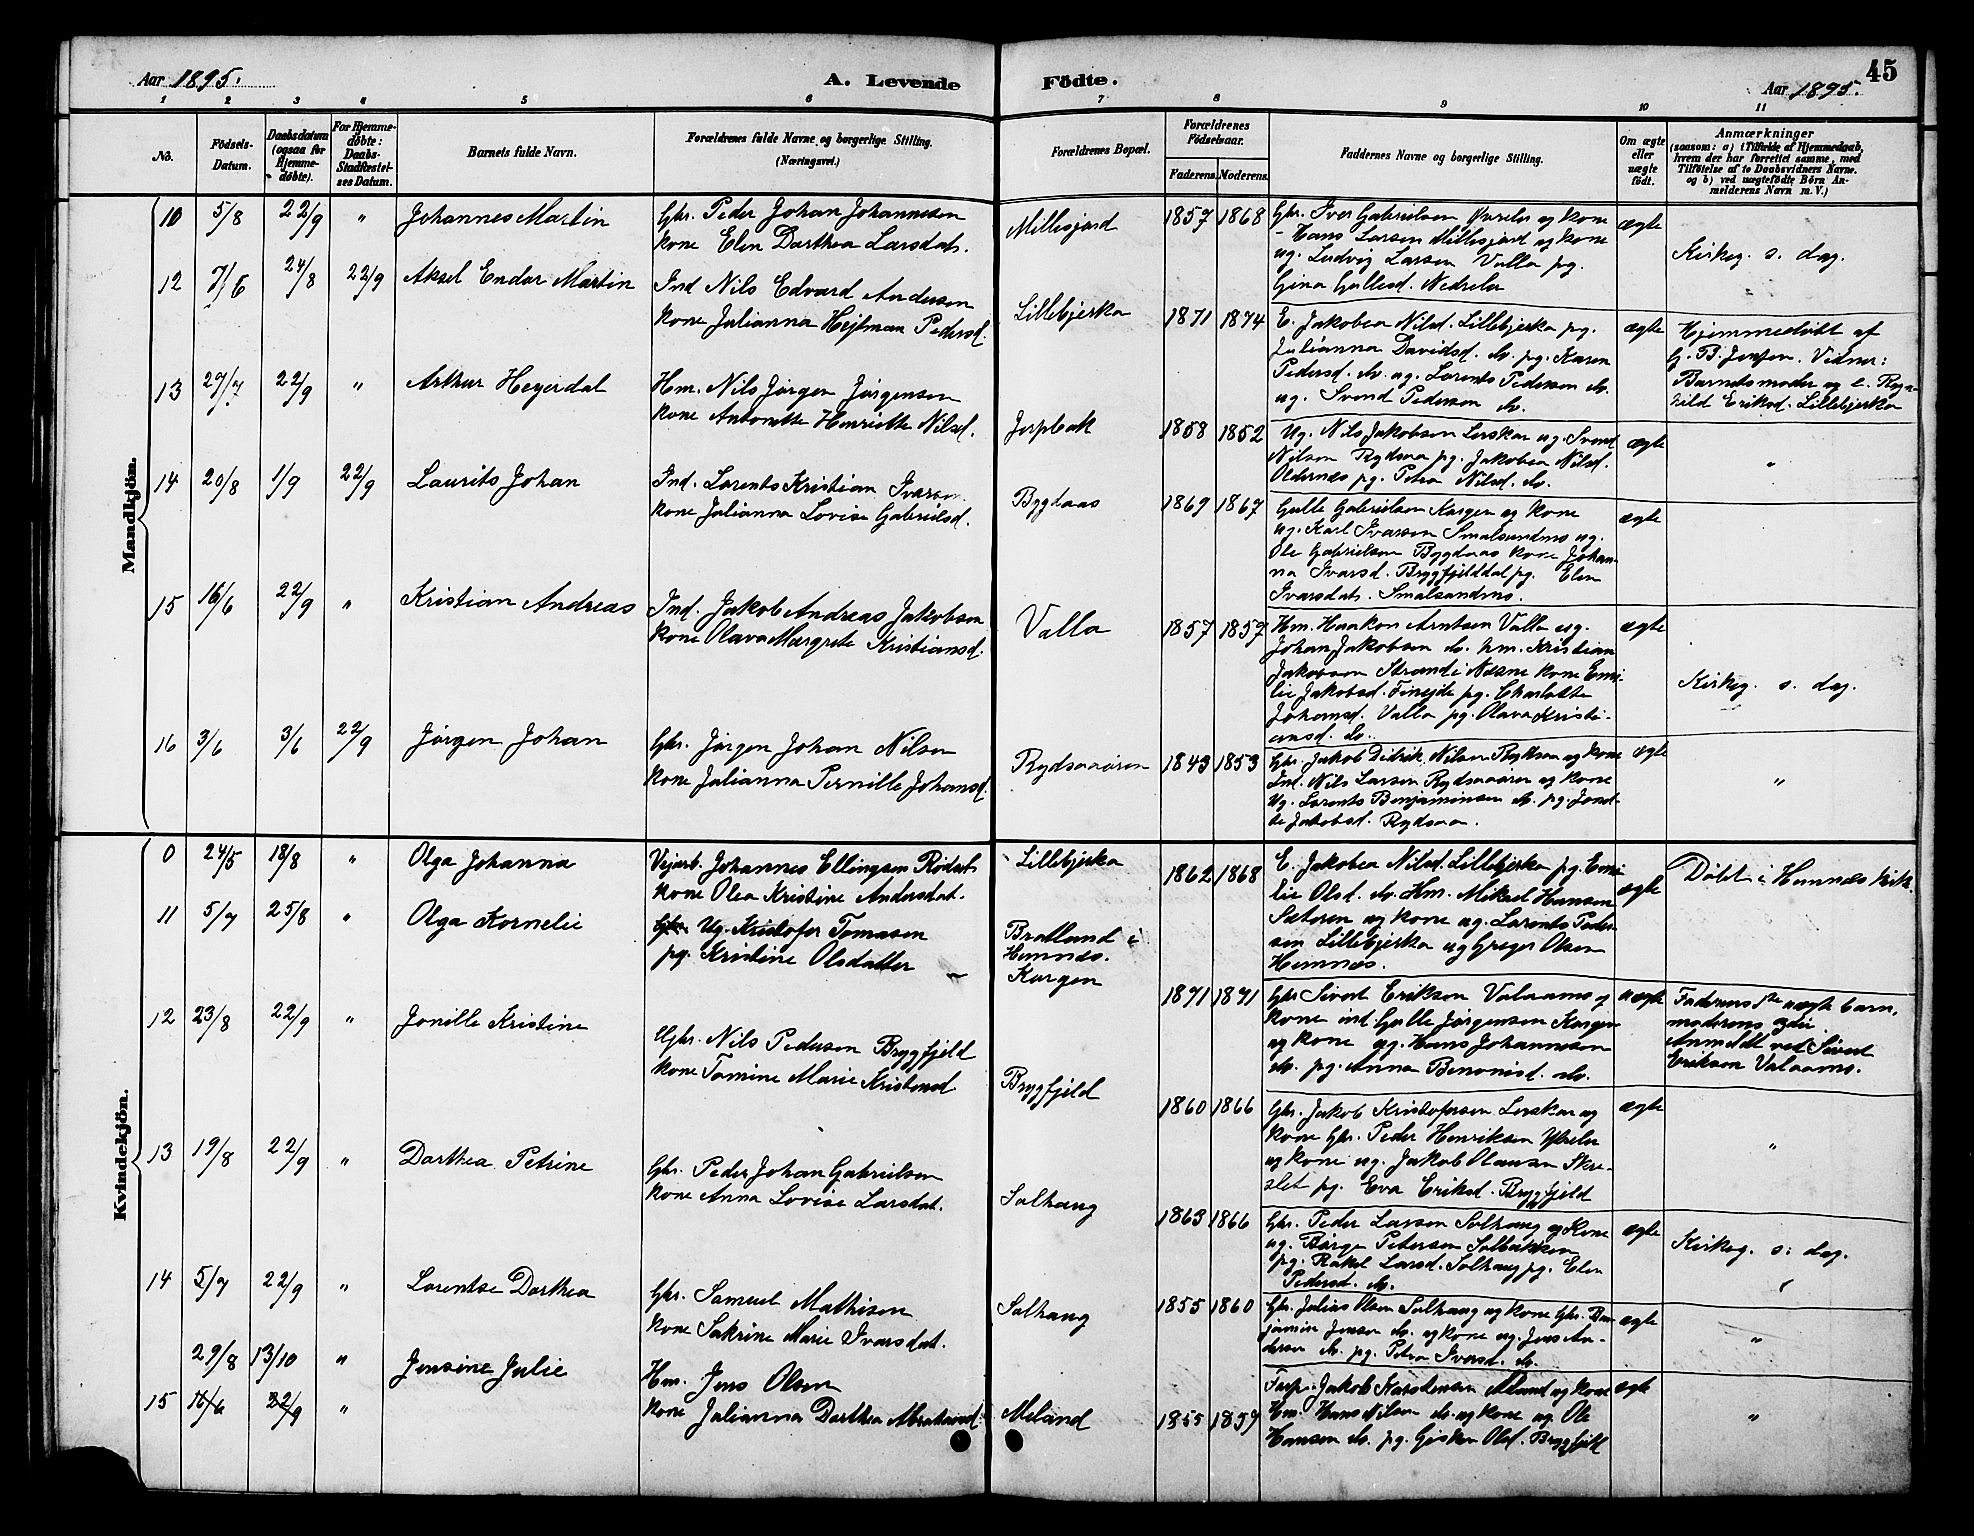 Aar 1895.
A. Levende
Födte.
Aar 1895.
45
1 2 3 4 5 6 7 8 9 10 11
No.
Födsels-
Datum.
Daabsdatum
(ogsaa for
Hjemme-
döbte).
For Hjemme-
döbte:
Daabs-
Stadfæstel-
ses Datum.
Barnets fulde Navn.
Forældrenes fulde Navne og borgerlige Stilling.
(Næringsvei.)
Forældrenes Bopæl.
Forældrenes
Födselsaar.
Faderens. Moderens.
Faddernes Navne og borgerlige Stilling.
Om ægte
eller
uægte
født.
Anmærkninger
(saasom: a) i Tilfælde af Hjemmedaab,
hvem der har forrettet samme, med
Tilföielse af to Daabsvidners Navne.
og b) ved uægtefödte Börn An-
melderens Navn m. V.)
Mandkjön.
10 5/8 22/9 " Johannes Martin
Gbr. Peder Johan Johannesen
kone Elen Dorthea Larsdat.
Millesjord
1857 1868
Gbr. Iver Gabrielsen og kone
Hans Larsen Millesjord og kone
ug. Ludvig Larsen Valla pg.
Gina Gullesd. Nedreler
ægte
Kirkeg. s. dag.
12 7/6 24/8 22/9 Aksel Endar Martin
Ind Nils Edvard Andersen
kone Julianna Hejlman Pedersd.
Lillebjerka
1871 1874
E. Jakobea Nilsd. Lillebjerka pg.
Julianna Davidsd. do. pg. Karen
Pedersd. do. ug. Lorents Pedersen do.
ug. Svend Pedersen do.
ægte
Hjemmedøbt af
G. B. Jensen. Vidner:
Barnets moder og e. Rag-
hild Eriksd. Lillebjerka
13 27/7 22/9 " Arthur Heyerdal
Hm. Nils Jørgen Jørgensen
kone Antonette Henriette Nilsd.
Jerpbak
1858 1852
Ug. Nils Jakobsen Lerskar ug. Svend
Nilsen Rydsaa pg. Jakobea Nilsd.
Oldernes pg. Petra Nilsd. do.
ægte
"
14 20/8 1/9 22/9 Laurits Johan
Ind. Lorents Kristian Ivarsen
kone Julianna Lovise Gabrielsd.
Bygdaas
1869 1867
Gulle Gabrielsen Korgen og kone
ug. Karl Ivarsen Smalsundmo ug.
Ole Gabrielsen Bygdaas kone Johan-
na Ivarsd. Bryggfjelddal pg. Elen
Ivarsdat. Smalsundmo.
ægte
15 16/6 22/9 " Kristian Andreas
Ind. Jakob Andreas Jakobsen
kone Olava Margrete Kristiansd.
Valla
1857 1857
Hm. Haakon Arntsen Valla ug.
Johan Jakobsen do. hm. Kristian
Jakobsen Strand i Nesne kone Emi-
lie Jakobsd. Finejde pg. Charlotte
Johansd. Valla pg. Olava Kristi-
ansd. do.
ægte
Kirkeg. s. dag.
16 3/6 3/6 22/9 Jørgen Johan
Gbr. Jørgen Johan Nilsen
kone Julianna Pernille Johansd.
Rydsaaøren
1843 1853
Gbr. Jakob Didrik Nilsen og kone
Ind. Nils Larsen Rydsaaøren og kone
Ug. Lorents Benjaminsen do. pg.
Jakobsd. Rydsaa.
ægte
"
Kvindekjön.
0 24/5 18/8 " Olga Johanna
Vejarb. Johannes Ellingsen Rødset
kone Olea Kristine Andersdat.
Lillebjerka
1862 1868
E. Jakobea Nilsd. Lillebjerka pg. Emi-
lie Olsd. do. Hm. Mikael Hansen
Sæteren og kone ug. Lorents Peder-
sen Lillebjerka ug Greger Olsen
Hemnes.
ægte
Döbt i Hemnes kirk.
11 5/7 25/8 " Olga Kornelie
Gbr. Ug. Kristofer Tomasen
pg. Kristine Olsdatter
Bratland i
Hemnes.
Korgen
1871 1871
Gbr Sivert Eriksen Valaamo og
kone ind. Gulle Jørgensen Korgen
og kone ug. Hans Johannesen
do. pg. Anna Benonisd. do.
uægte
Faderens 1ste uægte barn,
moderens 2det.
Anmeldt ved Sivert
Eriksen Valaamo.
12 23/8 22/9 " Jonille Kristine
Gbr. Nils Pedersen Bryggfjeld
kone Tomine Marie Kristensd
Bryggfjeld
1860 1866
Gbr. Jakob Kristofersen Lerskar og
kone Gbr. Peder Henriksen Ytreler
og kone ug. Jakob Olausen Skre-
slet pg. Eva Eriksd. Bryggfjeld
ægte
"
13 19/8 22/9 " Dorthea Petrine
Gbr. Peder Johan Gabrielsen
kone Anna Lovise Larsdat.
Solhaug
1863 1866
Gbr. Peder Larsen Solhaug og kone
ug. Børge Petersen Solbakken
pg. Rakel Larsd. Solhaug pg. Elen
Pedersd. do.
ægte
Kirkeg. s. dag.
14 5/7 22/9 " Lorentse Dorthea
Gbr. Samuel Mathisen
kone Sakrine Marie Ivarsdat.
Solhaug
1855 1860
Gbr. Julius Olsen Solhaug og kone Gbr. Ben-
jamin Jensen do. og kone ug. Jens An-
dersen do. pg. Petra Iversd. do.
ægte
"
29/8 13/10 " Jensine Julie
15 16/6 22/9 "
Hm. Jens Olsen
kone Julianna Dorthea Abrahamsd.
Meland
1855 1859
Jakob Karstensen Meland og kone
Hm. Hans Nilsen do. og kone ug. Ole
Hansen do. pg. Gisken Olsd. Bryggfjeld
ægte
"